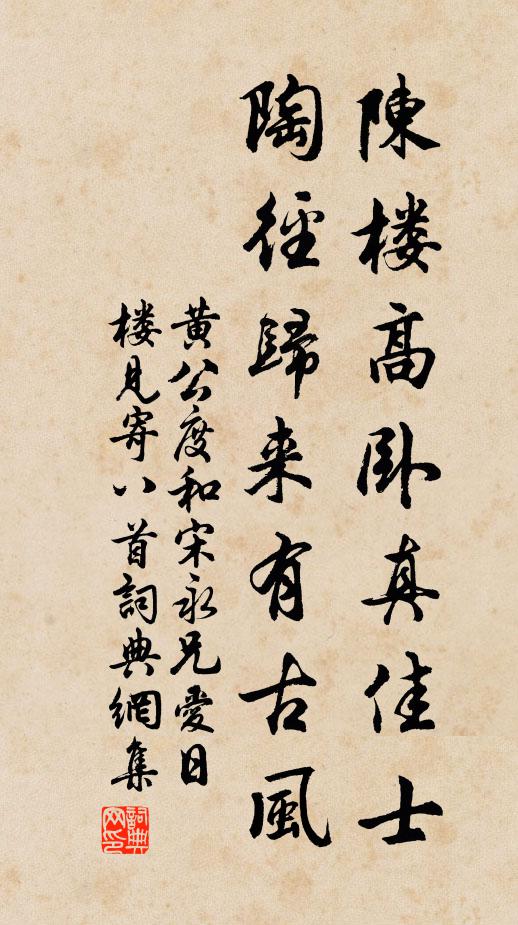 陳楼高卧真佳士
陶徑歸来有古風
黄公度和宋永兄愛日
楼見寄八首詞典網集
詞典
网印